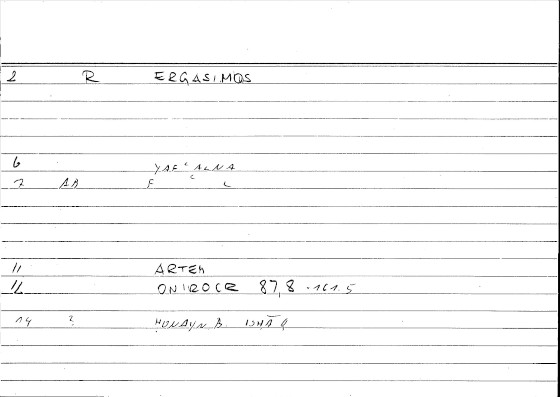 2 R ERGASIMOS
6
7 AA F
11 ARTEM
12 ONIROCR 87,8 -161.5
14 ? HUNAYN B. ISḤĀQ